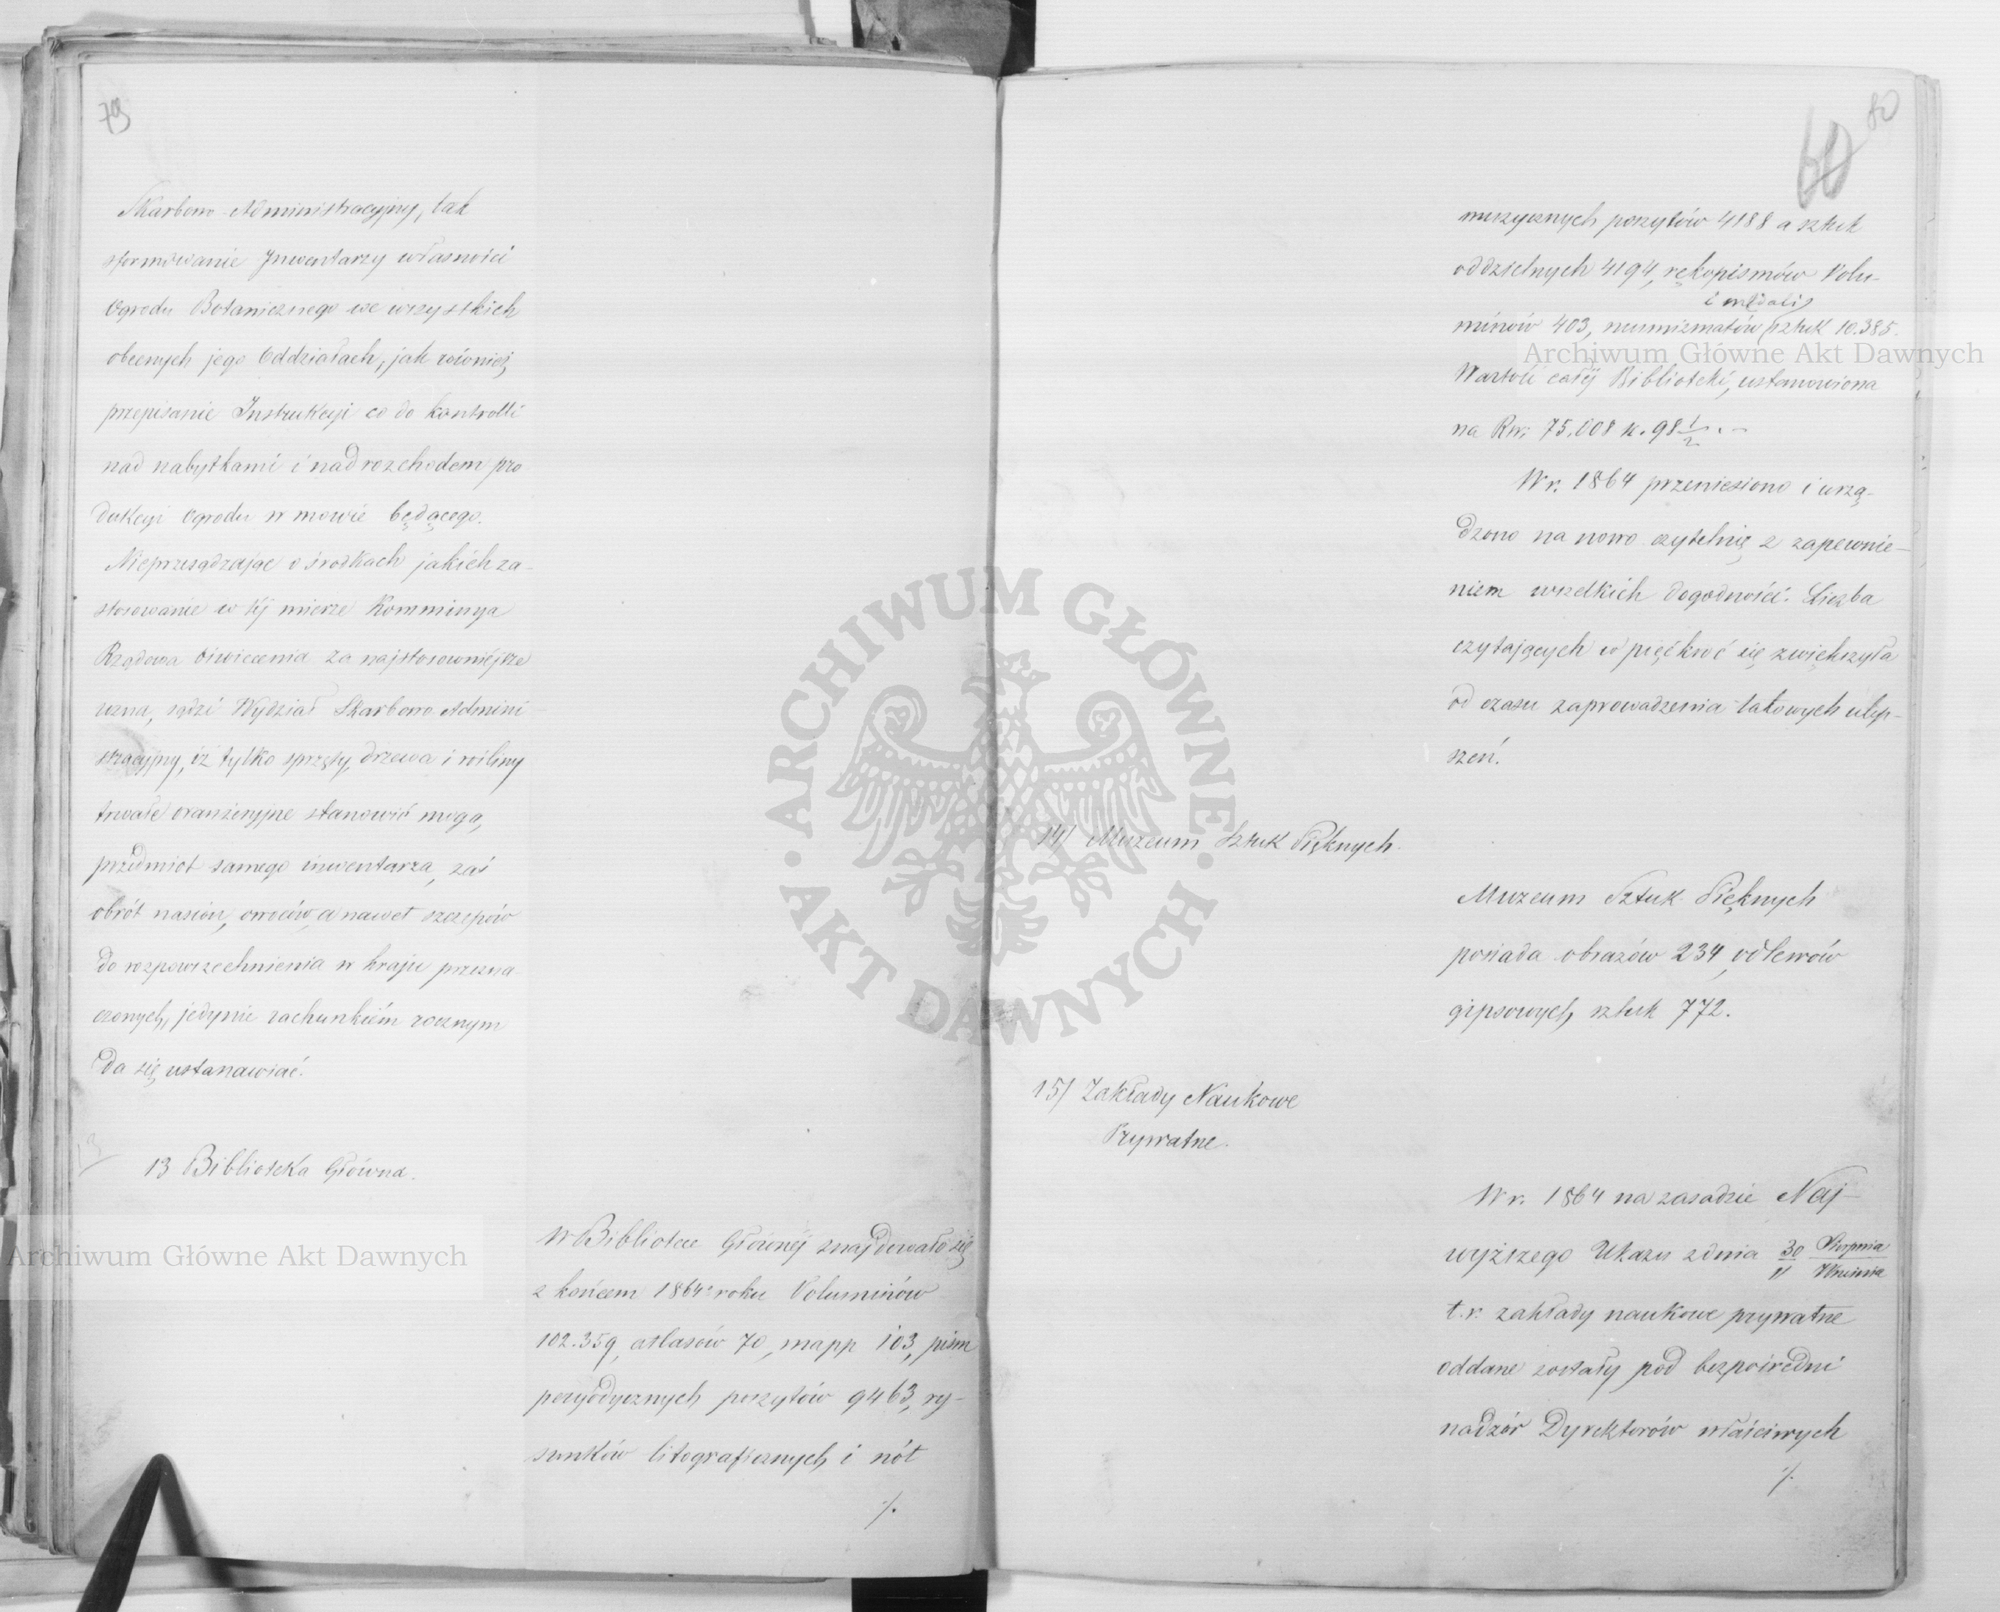 79
Skarbowo-Administracyjny, tak
sformowanie Inwentarzy własności
Ogrodu Botanicznego we wszystkich
obecnych jego Oddziałach, jak również
przepisanie Instrukcyi co do kontrolli
nad nabytkami i nad rozchodem pro-
dukcyi Ogrodu w mowie będącego.
Nieprzesądzając o środkach jakich za-
stosowanie w téj mierze Kommissya
Rządowa Oświecenia za najstosowniejsze
uzna, sądzi Wydział Skarbowo Admini-
stracyjny, iż tylko sprzęty, drzewa i rośliny
trwałe oranżeryjne stanowić mogą,
przedmiot samego inwentarza, zaś
obrót nasion, owoców, a nawet szczepów
do rozpowszechnienia w kraju przezna-
czonych, jedynie rachunkiém rocznym
da się ustanawiać.
13
13 Biblioteka Główna.
W Bibliotece Głównéj znajdowało się
z końcem 1864 roku Voluminów
102.359, atlasów 70, mapp 103, pism
peryodycznych poszytów 9463, ry-
sunków litograficznych i nót
./.
80
60
muzycznych poszytów 4188 a sztuk
oddzielnych 4194, rękopismów Volu-
i medali
minów 403, numizmatów sztuk 10.385.
Wartość całéj Biblioteki, ustanowiona
na Rsr. 75.008 k. 98 1/2.-
W r. 1864 przeniesiono i urzą-
dzono na nowo czytelnię z zapewnie-
niem wszelkich dogodności. Liczba
czytających w pięćkroć się zwiększyła
od czasu zaprowadzenia takowych ulep-
szeń.
14/ Muzeum Sztuk Pięknych.
Muzeum Sztuk Pięknych
posiada obrazów 234, odlewów
gipsowych sztuk 772.
15/ Zakłady Naukowe
Prywatne.
W r. 1864 na zasadzie Naj-
wyższego Ukazu z dnia 30/11 Sierpnia/Września
t.r. zakłady naukowe prywatne
oddane zostały pod bezpośredni
nadzór Dyrektorów właściwych
./.
Archiwum Główne Akt Dawnych
Archiwum Główne Akt Dawnych
ARCHIWUM GŁÓWNE · AKT DAWNYCH ·